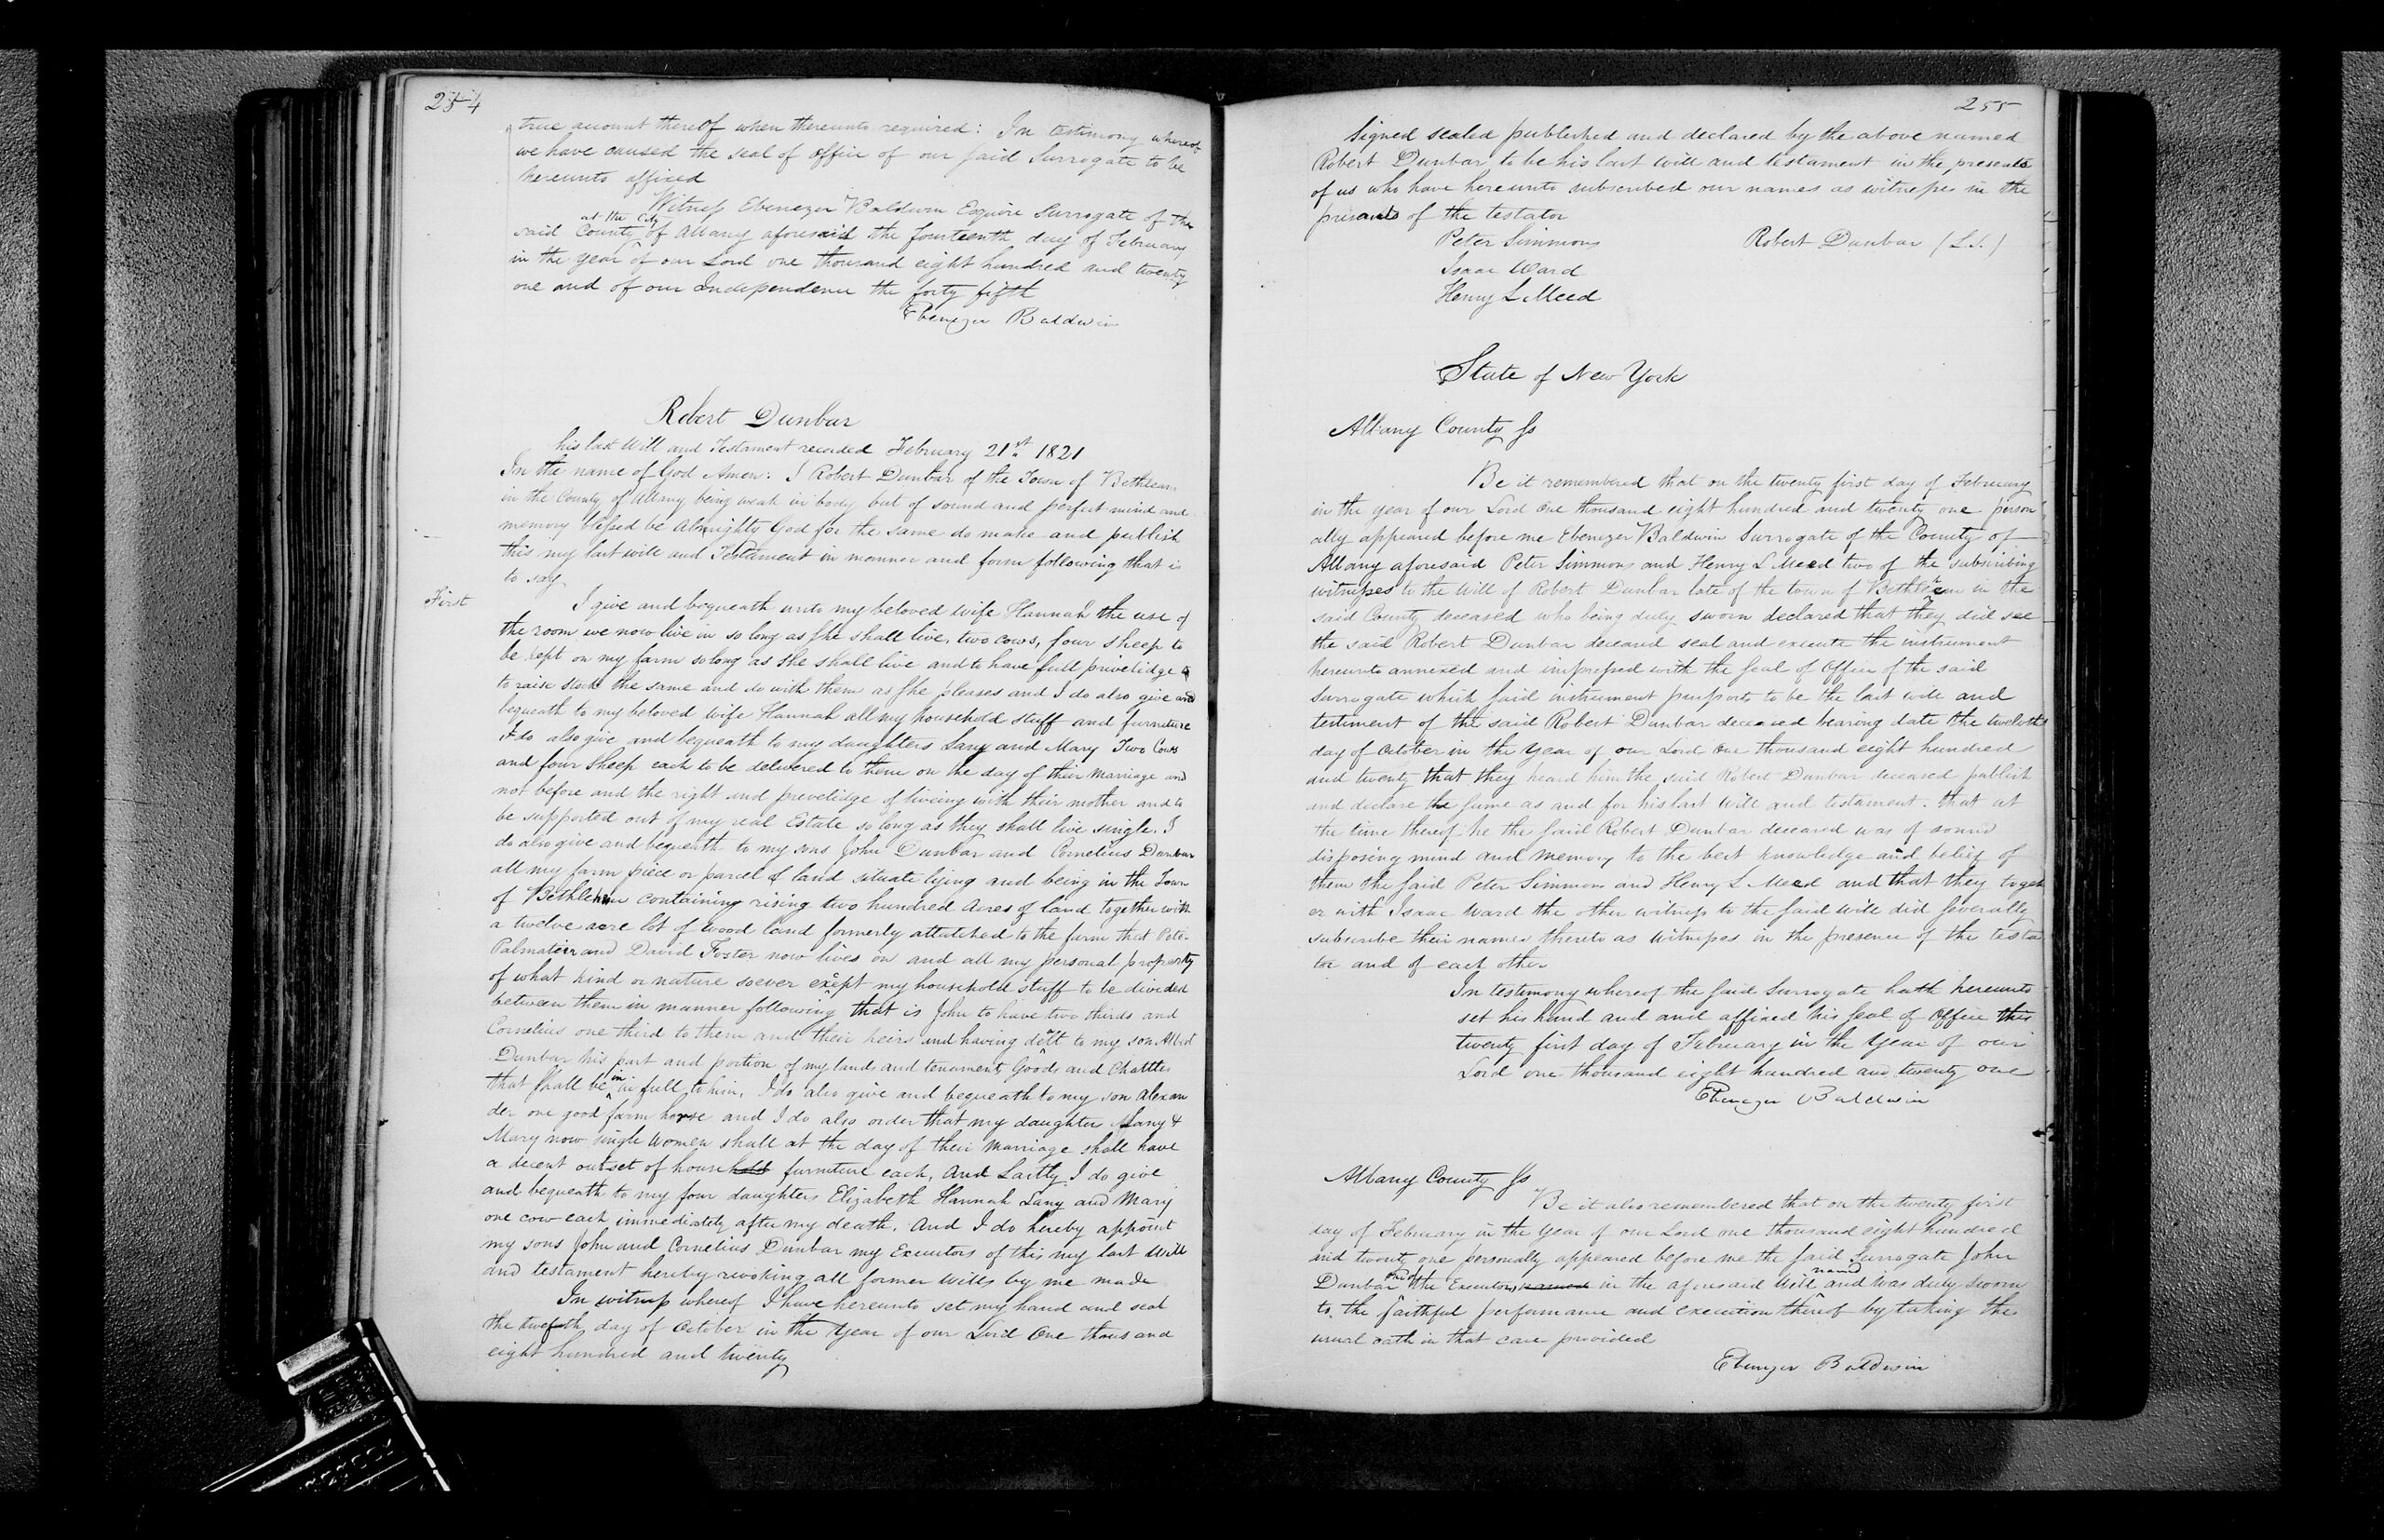 254
true account thereof when thereunto required: In testimony whereof
we have caused the seal of office of our said Surrogate to be
hereunto affixed
Witness Ebenezer Baldwin Esquire Surrogate of the
at the City
said County of Albany aforesaid the fourteenth day of February
in the year of our Lord one thousand eight hundred and twenty
one and of our Independence the forty fifth
Ebenezer Baldwin
Robert Dunbar
his last Will and Testament recorded February 21st 1821
In the name of God Amen: I Robert Dunbar of the Town of Bethlem
in the County of Albany being weak in body but of sound and perfect mind and
memory blessed be Almighty God for the same do make and publish
this my last will and Testament in manner and form following that is
to say
First
I give and bequeath unto my beloved wife Hannah the use of
the room we now live in so long as she shall live, two cows, four sheep to
be kept on my farm so long as she shall live and to have full privelidge
to raise stock the same and do with them as she pleases and I do also give and
bequeath to my beloved wife Hannah all my household stuff and furneture
I do also give and bequeath to my daughters Lany and Mary Two Cows
and four Sheep each to be delivered to them on the day of their marriage and
not before and the right and prevelidge of liveing with their mother and to
be supported out of my real Estate so long as they shall live single. I
do also give and bequeath to my sons John Dunbar and Cornelius Dunbar
all my farm piece or parcel of land situate lying and being in the Town
of Bethlehem containing rising two hundred Acres of land together with
a twelve acre lot of wood land formerly attatched to the farm that Peter
Palmateir and David Foster now lives on and all my personal property
of what kind or nature soever except my household stuff to be divided
between them in manner following that is John to have two thirds and
Cornelius one third to them and their heirs and having delt to my son
Dunbar his part and portion of my lands and tenaments Goods and Chattles
that shall be in full to him. I do also give and bequeath to my son Alexan
der one good farm horse and I do also order that my daughter Lany &
Mary now single women shall at the day of their marriage shall have
a decent outset of household furniture each. And Lastly I do give
and bequeath to my four daughters Elizabeth Hannah Lany and Mary
one cow each immediately after my death. And I do hereby appoint
my sons John and Cornelius Dunbar my Executors of this my last will
and testament hereby revoking all former wills by me made
In witness whereof I have hereunto set my hand and seal
the twelfth day of October in the Year of our Lord One thousand
eight hundred and twenty
255
Signed sealed published and declared by the above named
Robert Dunbar to be his last will and testament in the presents
of us who have hereunto subscribed our names as witnesses in the
presents of the testator
Peter Simmons Robert Dunbar (L.S.)
Isaac Ward
Henry L Meed
State of New York
Albany County Ss
Be it remembered that on the twenty first day of February
in the year of our Lord one thousand eight hundred and twenty one person
ally appeared before me Ebenezer Baldwin Surrogate of the County of
Albany aforesaid Peter Simmons and Henry L Meed two of the subscribing
witnesses to the Will of Robert Dunbar late of the town of Bethlehem in the
said County deceased who being duly sworn declared that they did see
the said Robert Dunbar deceased seal and execute the instrument
hereunto annexed and impressed with the seal of Office of the said
Surrogate which said instrument purports to be the last will and
testiment of the said Robert Dunbar deceased bearing date the twelvth
day of October in the Year of our Lord One thousand eight hundred
and twenty that they heard him the said Robert Dunbar deceased publish
and declare the same as and for his last will and testament. that at
the time thereof he the said Robert Dunbar deceased was of sound
disposing mind and memory to the best knowledge and belief of
them the said Peter Simmons and Henry L Meed and that they togeth
er with Isaac Ward the other witness to the said will did severally
subscribe their names thereto as Witnesses in the presence of the testa
tor and of each other
In testimony whereof the said Surrogate hath hereunto
set his hand and and affixed his seal of Office this
twenty first day of February in the Year of our
Lord one thousand eight hundred and twenty one
Ebenezer Baldwin
Albany County Ss
Be it also remembered that on the twenty first
day of February in the Year of our Lord one thousand eight hundred
and twenty one personally appeared before me the said Surrogate John
Dunbar one of the Executors named in the aforesaid Will named and was duly sworn
to the faithful performance and execution thereof by taking the
usual oath in that case provided
Ebenezer Baldwin